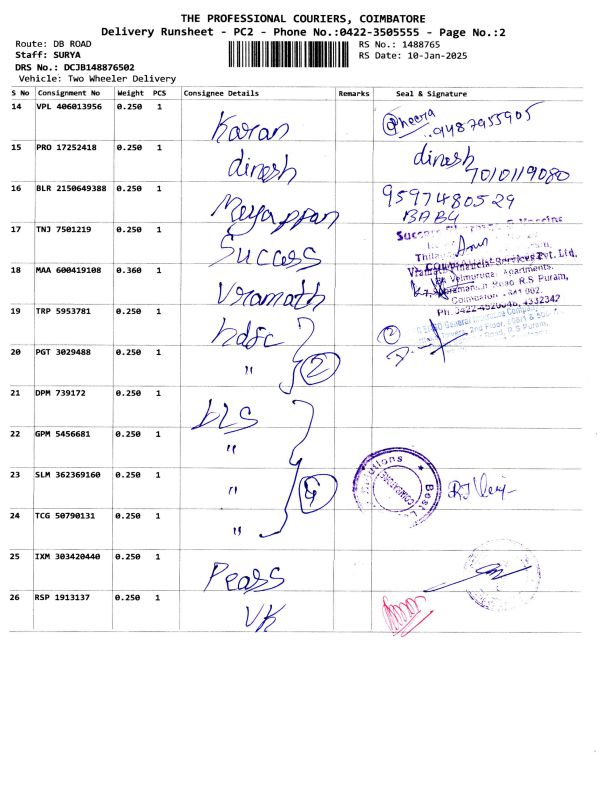 THE PROFESSIONAL COURIERS, COIMBATORE
Delivery Runsheet - PC2 - Phone No.:0422-3505555 - Page No.:2
Route: DB ROAD
RS No.: 1488765
Staff: SURYA
RS Date: 10-Jan-2025
DRS No.: DCJB148876502
Vehicle: Two Wheeler Delivery
S No Consignment No Weight PCS Consignee Details Remarks Seal & Signature
14 VPL 406013956 0.250 1 Karan
9487955905
15 PRO 17252418 0.250 1 dinesh dinesh
7010119080
16 BLR 2150649388 0.250 1 Meyappan 9597480529
BABY
17 TNJ 7501219 0.250 1 Success
18 MAA 600419108 0.360 1 Vramath
Financial Services Pvt. Ltd.
Apartments,
Road R.S Puram,
Coimbatore
19 TRP 5953781 0.250 1 hdfc 2
20 PGT 3029488 0.250 1 " 2
General Insurance Company
2nd Floor,
Road, R S Puram,
21 DPM 739172 0.250 1
22 GPM 5456681 0.250 1 "
23 SLM 362369160 0.250 1 " 4
24 TCG 50790131 0.250 1 "
25 IXM 303420440 0.250 1 Pearss
26 RSP 1913137 0.250 1 VK